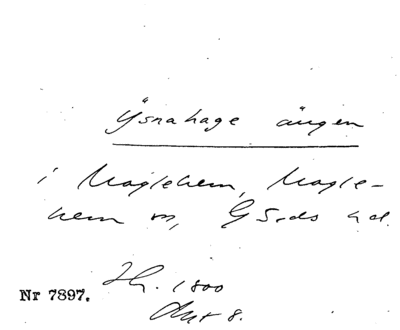 Ysnahage ängen
i Maglehem, Magle-
hem sn, Gärds hd.
Nr 7897.
1800
8.